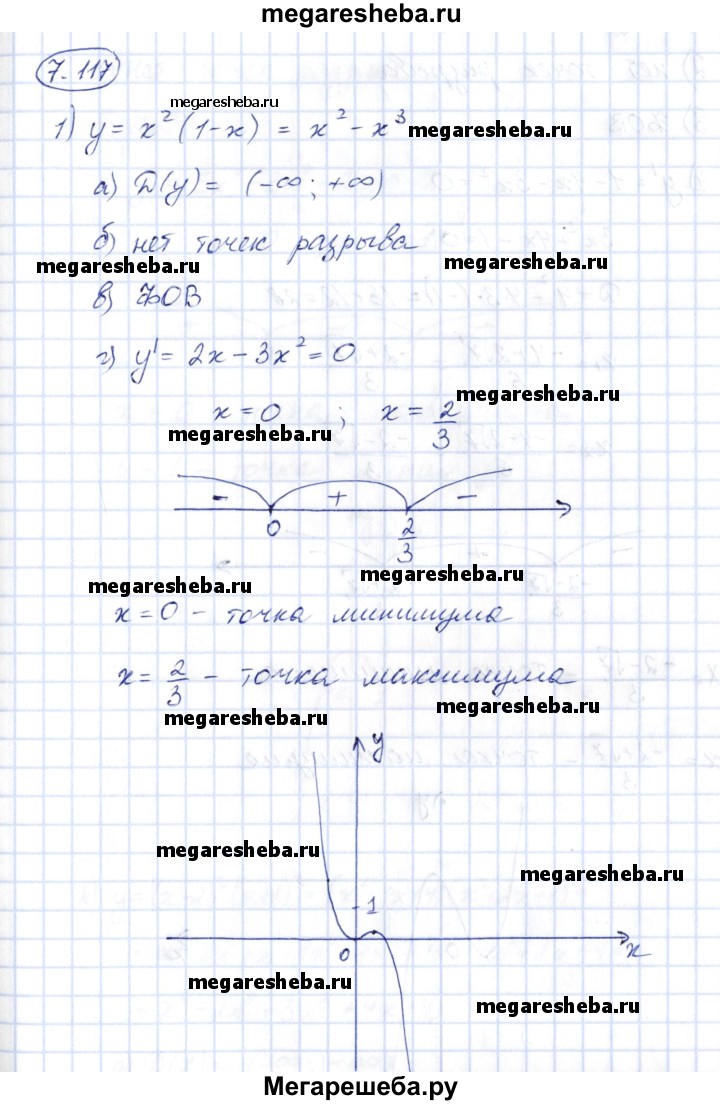 megaresheba.ru
7.117
megaresheba.ru
1) y = x²(1-x) = x² - x³
megaresheba.ru
а) D(y) = (-∞; +∞)
б) нет точек разрыва
megaresheba.ru
megaresheba.ru
в) ФОВ
г) y' = 2x - 3x² = 0
megaresheba.ru
x = 0 ; x = 2/3
megaresheba.ru
- + -
0 2/3
megaresheba.ru
megaresheba.ru
x = 0 - точка минимума
x = 2/3 - точка максимума
megaresheba.ru
megaresheba.ru
y
megaresheba.ru
megaresheba.ru
1
0 x
megaresheba.ru
megaresheba.ru
Мегарешеба.ру